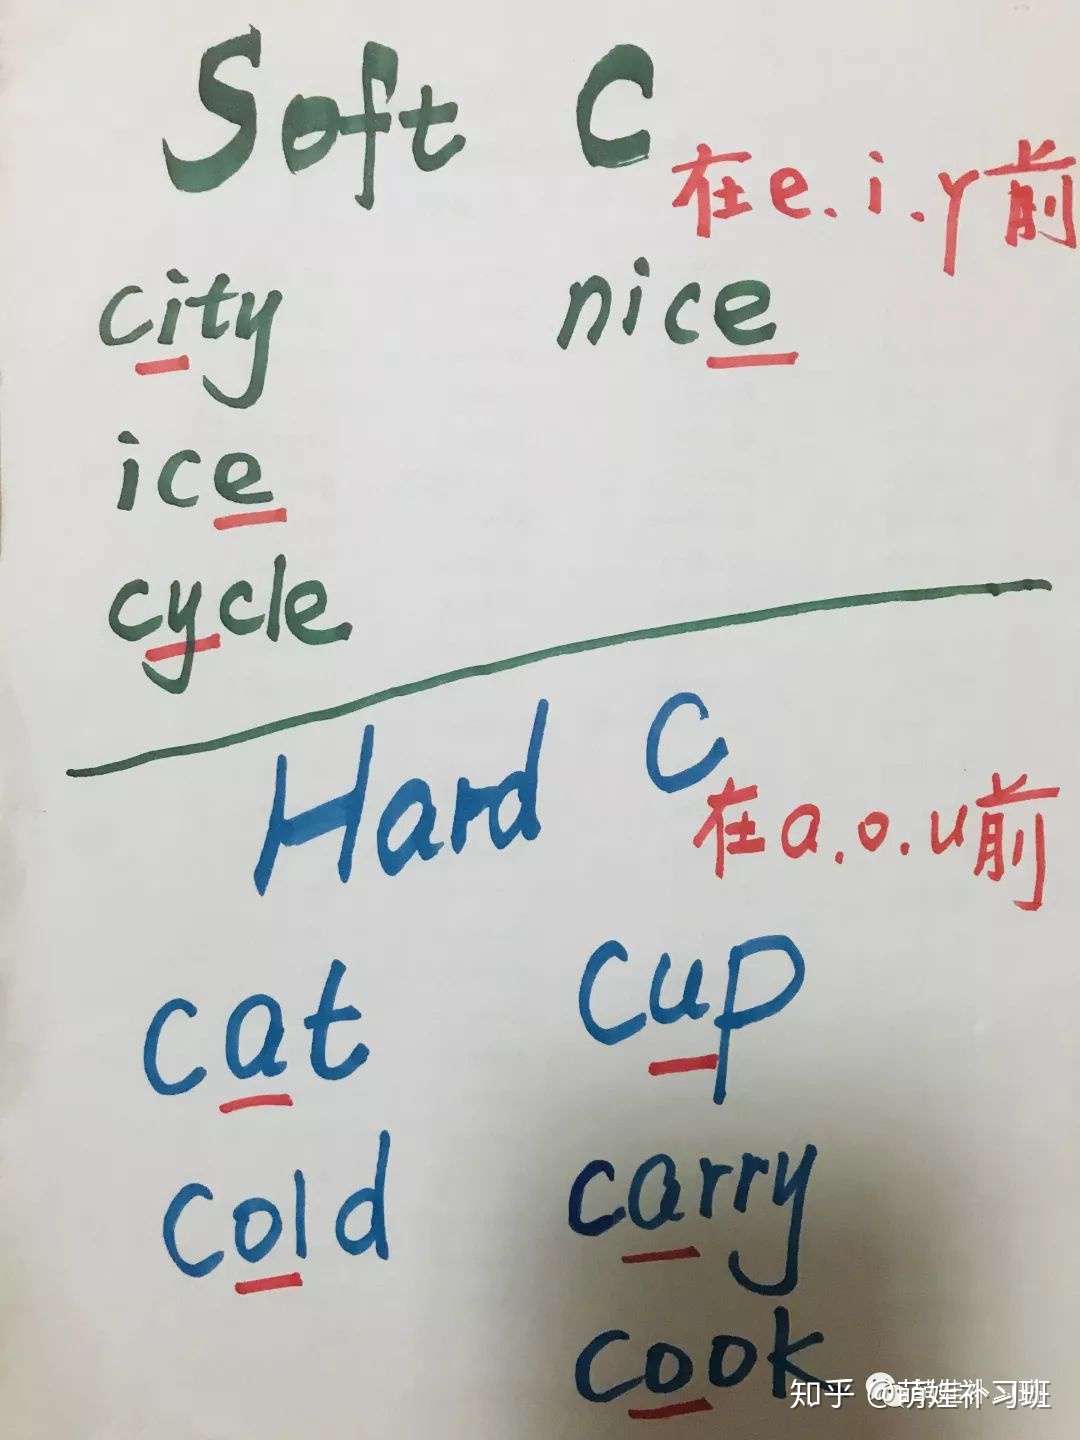 Soft C
在e.i.y前
city nice
ice
cycle
Hard C
在a.o.u前
cat cup
cold carry
cook
知乎 @萌娃补习班